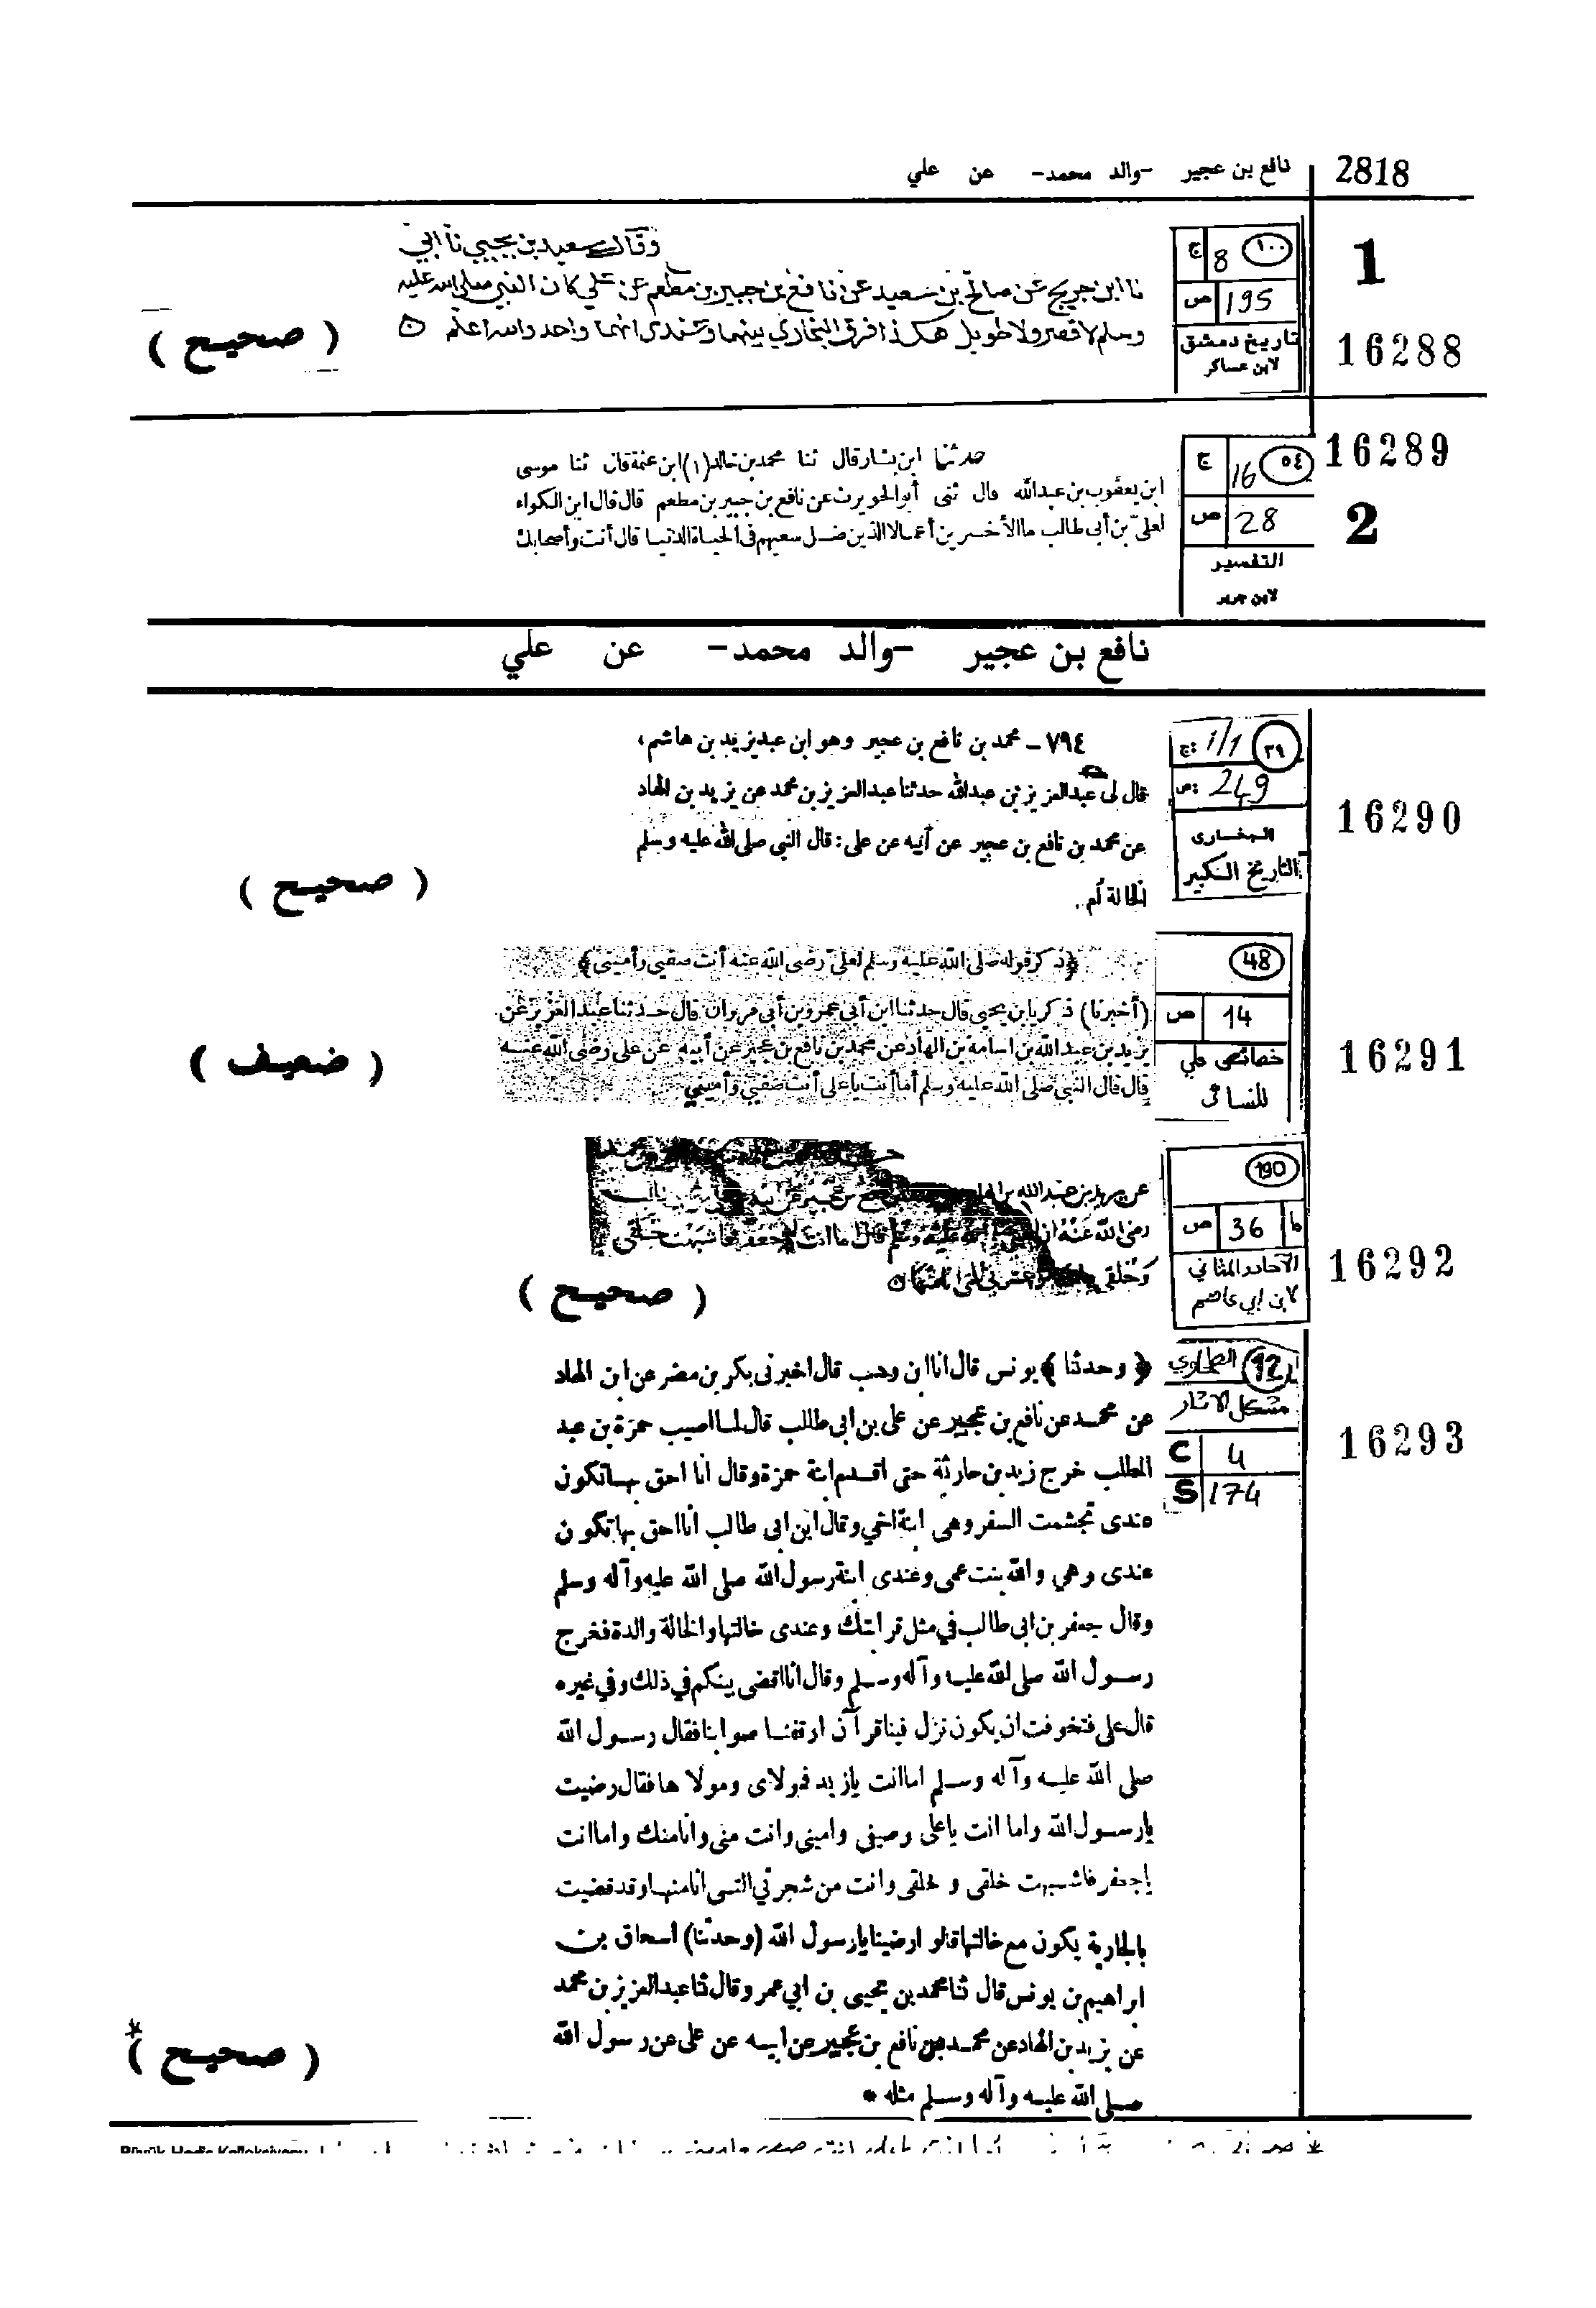 2818 نافع بن عجير -والد محمد- عن علي
1
16288
١٠٠ 8 ج
195 ص
تاريخ دمشق
لابن عساكر
وقال سعيد بن يحيى نا أبي
نا ابن جريج عن صالح بن سعيد عن نافع بن جبير بن مطعم عن علي كان النبي صلى الله عليه
وسلم لا قصير ولا طويل هكذا فرق البخاري بينهما وعندى انهما واحد والله اعلم
( صحيح )
16289
2
٥٤ 16 ج
28 ص
التفسير
لابن جرير
حدثنا ابن بشار قال ثنا محمد بن خالد (١) ابن عثمة قال ثنا موسى
ابن يعقوب بن عبدالله قال ثنى أبو الحويرث عن نافع بن جبير بن مطعم قال قال ابن الكواء
لعلى بن أبى طالب ما الأخسرين أعمالا الذين ضل سعيهم فى الحياة الدنيا قال أنت وأصحابك
نافع بن عجير -والد محمد- عن علي
16290
٣٩ 1/1 ج:
249 ص:
البخارى
التاريخ الكبير
٧٩٤ - محمد بن نافع بن عجير وهو ابن عبد يزيد بن هاشم،
قال لى عبد العزيز بن عبدالله حدثنا عبد العزيز بن محمد عن يزيد بن الهاد
عن محمد بن نافع بن عجير عن أبيه عن على: قال النبي صلى الله عليه وسلم
الخالة أم.
( صحيح )
16291
48
14 ص
خصائص علي
للنسائى
﴿ذكر قوله صلى الله عليه وسلم لعلى رضى الله عنه أنت صفيى وأمينى﴾
(أخبرنا) زكريا بن يحيى قال حدثنا ابن أبى عمر وبن أبى مروان قال حدثنا عبد العزيز عن
يزيد بن عبد الله بن اسامة بن الهاد عن محمد بن نافع بن عجير عن أبيه عن على رضى الله عنه
قال قال النبى صلى الله عليه وسلم أما أنت يا على أنت صفيي وأمينى
( ضعيف )
16292
190
36 ص
الآحاد والمثاني
لابن ابي عاصم
عن يزيد بن عبد الله بن
رضى الله عنه ان عليه وسلم قال ما انت جعفر فاشبهت خلقى
وخلقي
( صحيح )
16293
92 الطحاوي
مشكل الاثار
C 4
S 174
﴿وحدثنا﴾ يونس قال انا ابن وهب قال اخبرنى بكر بن مضر عن ابن الهاد
عن محمد عن نافع بن عجير عن على بن ابى طالب قال لما اصيب حمزة بن عبد
المطلب خرج زيد بن حارثة حتى اقدم ابنة حمزة وقال انا احق بها تكون
عندى تجشمت السفر وهى ابنة اخي وقال ابن ابى طالب انا احق بها تكون
عندى وهي والله بنت عمى وعندى ابنة رسول الله صلى الله عليه وآله وسلم
وقال جعفر بن ابى طالب في مثل قرابتك وعندى خالتها والخالة والدة فخرج
رسول الله صلى الله عليه وآله وسلم وقال انا اقضى بينكم في ذلك وفي غيره
قال على فتخوفت ان يكون نزل فينا قرآن ارتفعنا صوابنا فقال رسول الله
صلى الله عليه وآله وسلم اما انت يا زيد فمولاى ومولاها فقال رضيت
يا رسول الله واما انت يا على وصيفى وامينى وانت منى وانا منك واما انت
يا جعفر فاشبهت خلقى و خلقى وانت من شجرتي التى انا منها وقد قضيت
بالجارية يكون مع خالتها قالوا رضينا يا رسول الله (وحدثنا) اسحاق بن
ابراهيم بن يونس قال ثنا محمد بن يحيى بن ابي عمر وقال ثنا عبد العزيز بن محمد
عن يزيد بن الهاد عن محمد بن نافع بن عجير عن ابيه عن على عن رسول الله
صلى الله عليه وآله وسلم مثله *
( صحيح )*